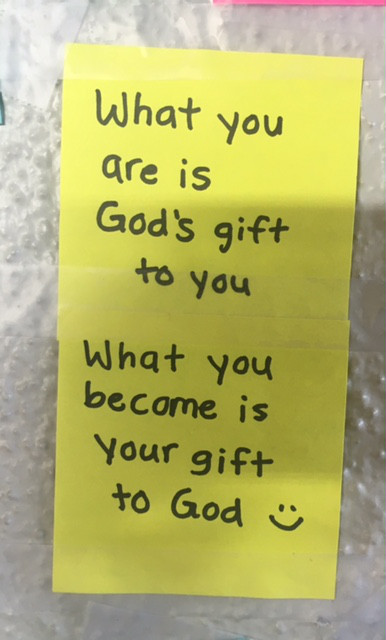 What you
are is
God's gift
to you
What you
become is
your gift
to God :)